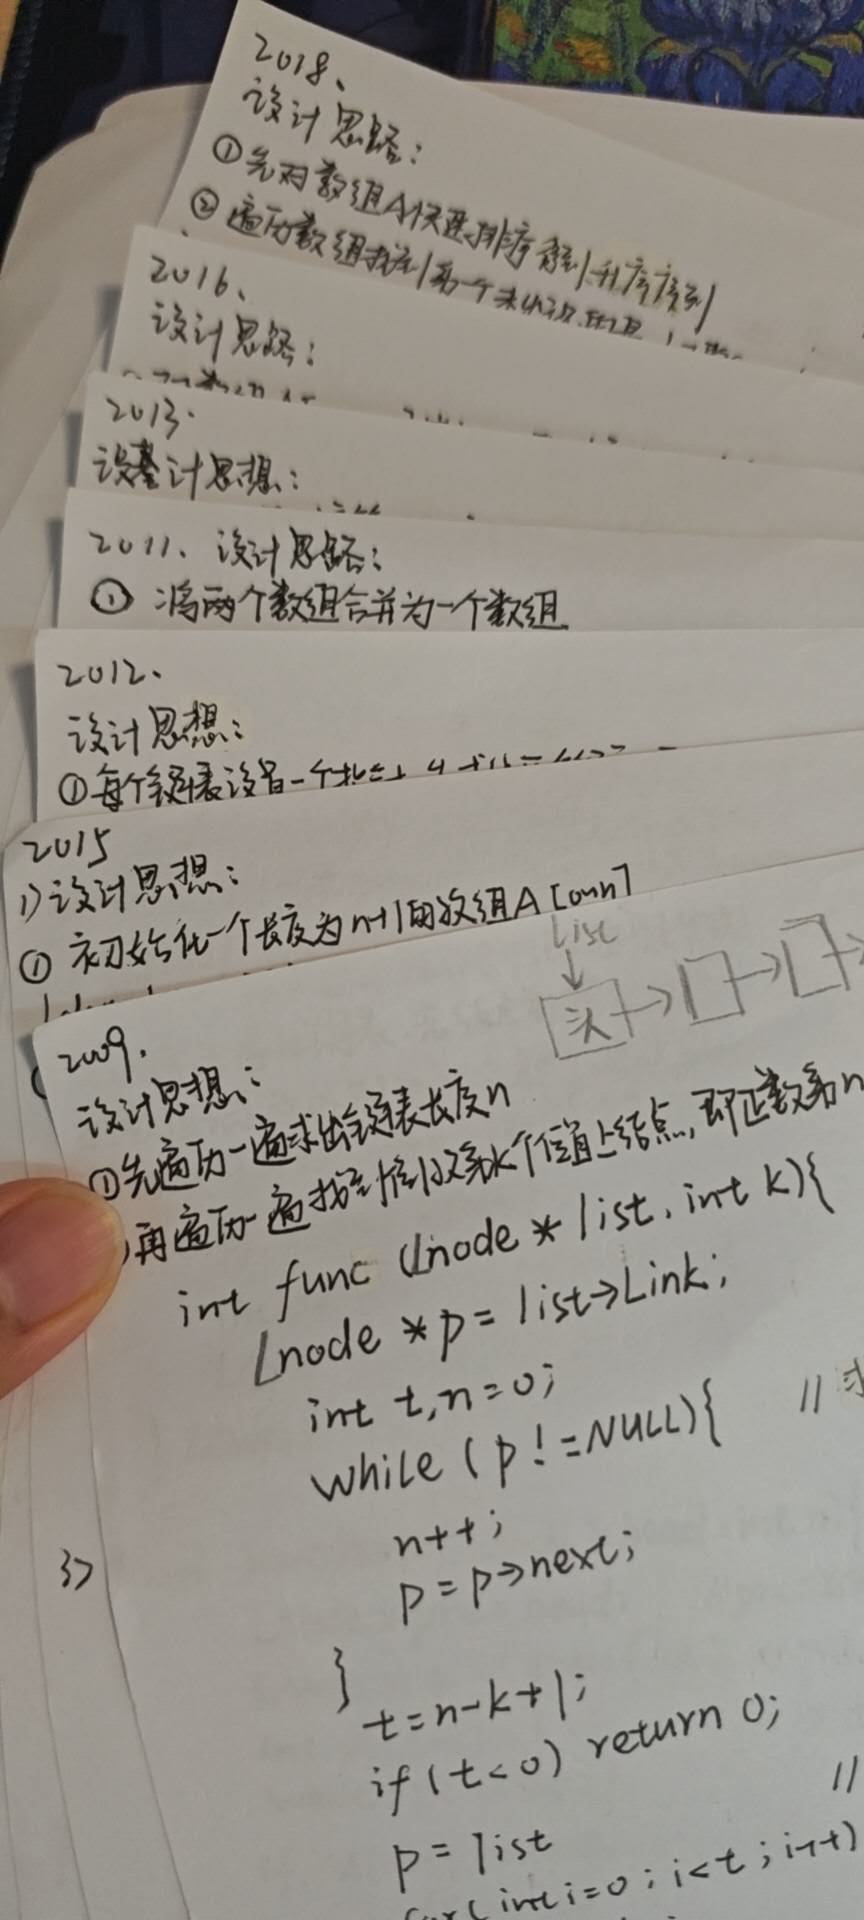 2018、
设计思路：
①先对数组A快速排序得到升序序列
②遍历数组找到第一个未出现
2016、
设计思路：
2013.
设计思想：
2011、设计思路：
① 将两个数组合并为一个数组
2012、
设计思想：
①每个链表设置一个指针
2015
1)设计思想：
① 初始化一个长度为n+1的数组A[0~n]
List
头
2009.
设计思想：
①先遍历一遍求出链表长度n
再遍历一遍找到倒数第k个位置上结点,即正数第n
int func (Lnode * list, int k){
Lnode *p = list->Link;
int t,n=0;
while (p!=NULL){ //求
n++;
3>
p=p->next;
}
t=n-k+1;
if(t<0) return 0;
//
p = list
for(int i=0; i<t; i++)